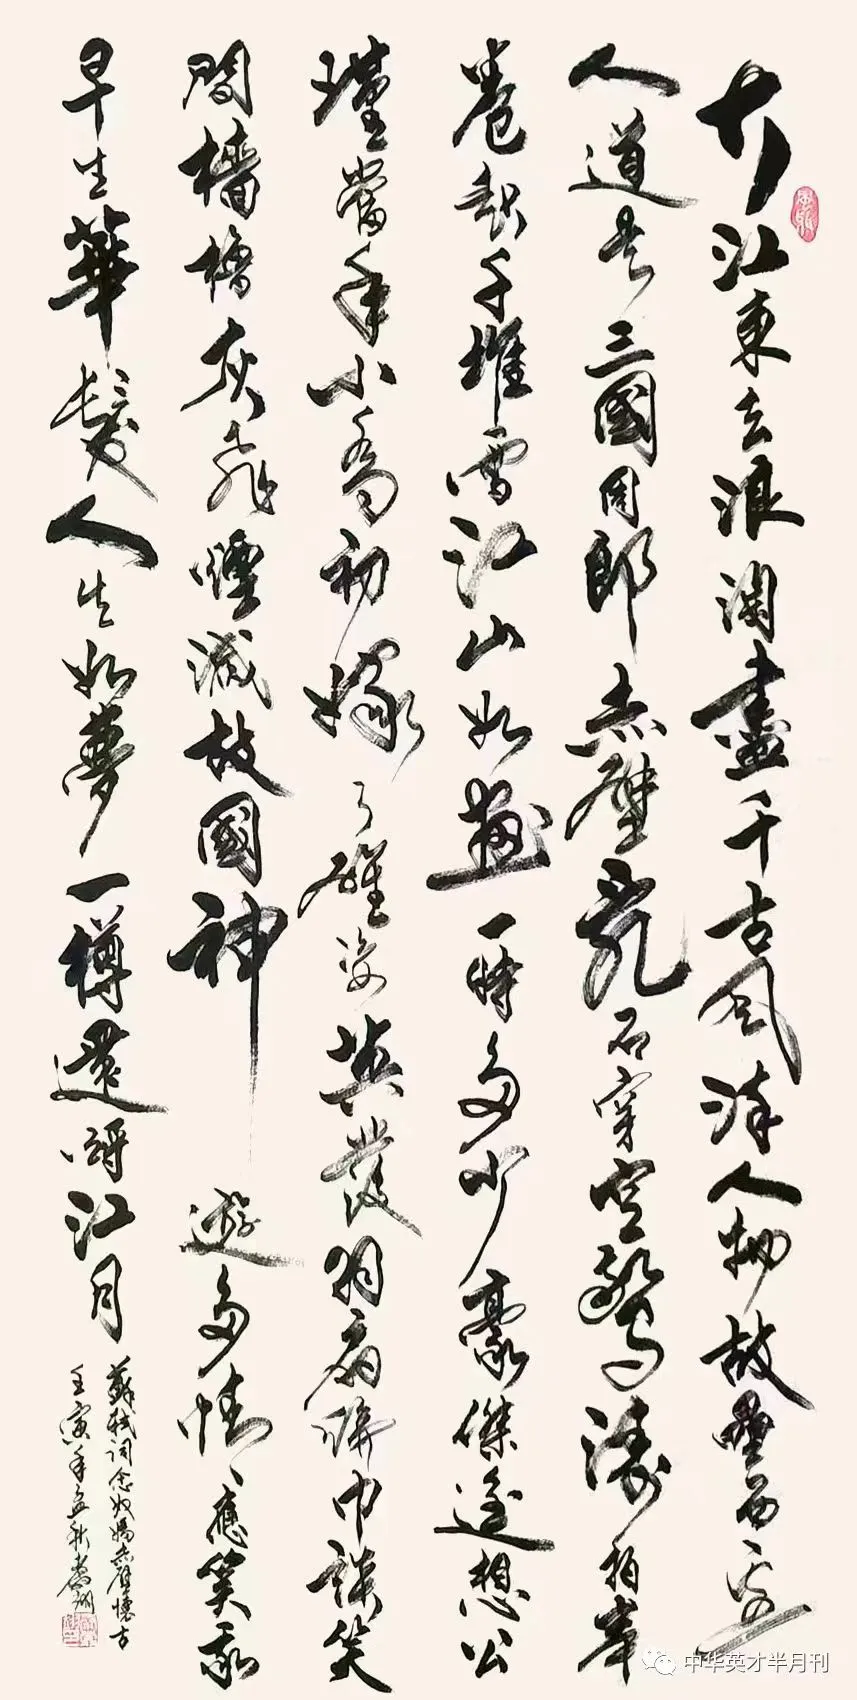 大江東去浪淘盡千古風流人物故壘西邊
人道是三國周郎赤壁亂石穿空驚濤拍岸
卷起千堆雪江山如畫一時多少豪傑遥想公
瑾當年小喬初嫁了雄姿英發羽扇綸巾談笑
間檣櫓灰飛煙滅故國神遊多情應笑我
早生華髮人生如夢一樽還酹江月
蘇軾詞念奴嬌赤壁懷古
壬寅年孟秋
中华英才半月刊